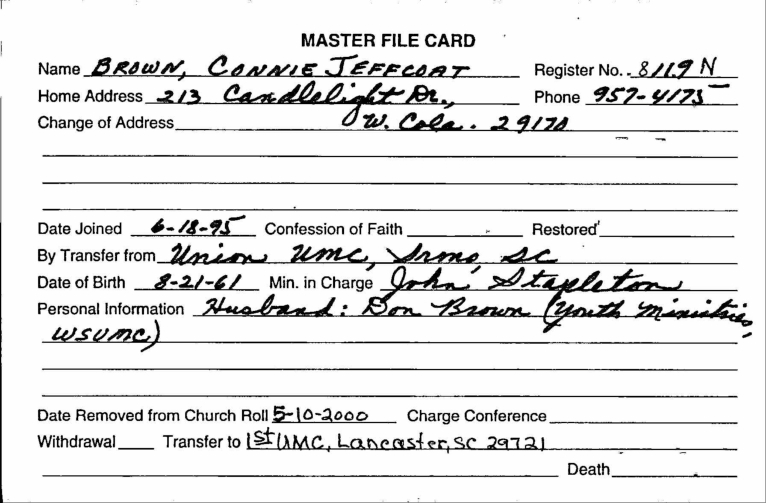 MASTER FILE CARD
Name BROWN, CONNIE JEFFCOAT Register No.. 8119 N
Home Address 213 Candlelight Dr., Phone 957-4175
Change of Address W. Cola. 29170
Date Joined 6-18-95 Confession of Faith Restored
By Transfer from Union UMC, Irmo, SC
Date of Birth 8-21-61 Min. in Charge John Stapleton
Personal Information Husband: Don Brown (Youth Ministries,
WSUMC)
Date Removed from Church Roll 5-10-2000 Charge Conference
Withdrawal Transfer to 1st UMC, Lancaster, SC 29721
Death